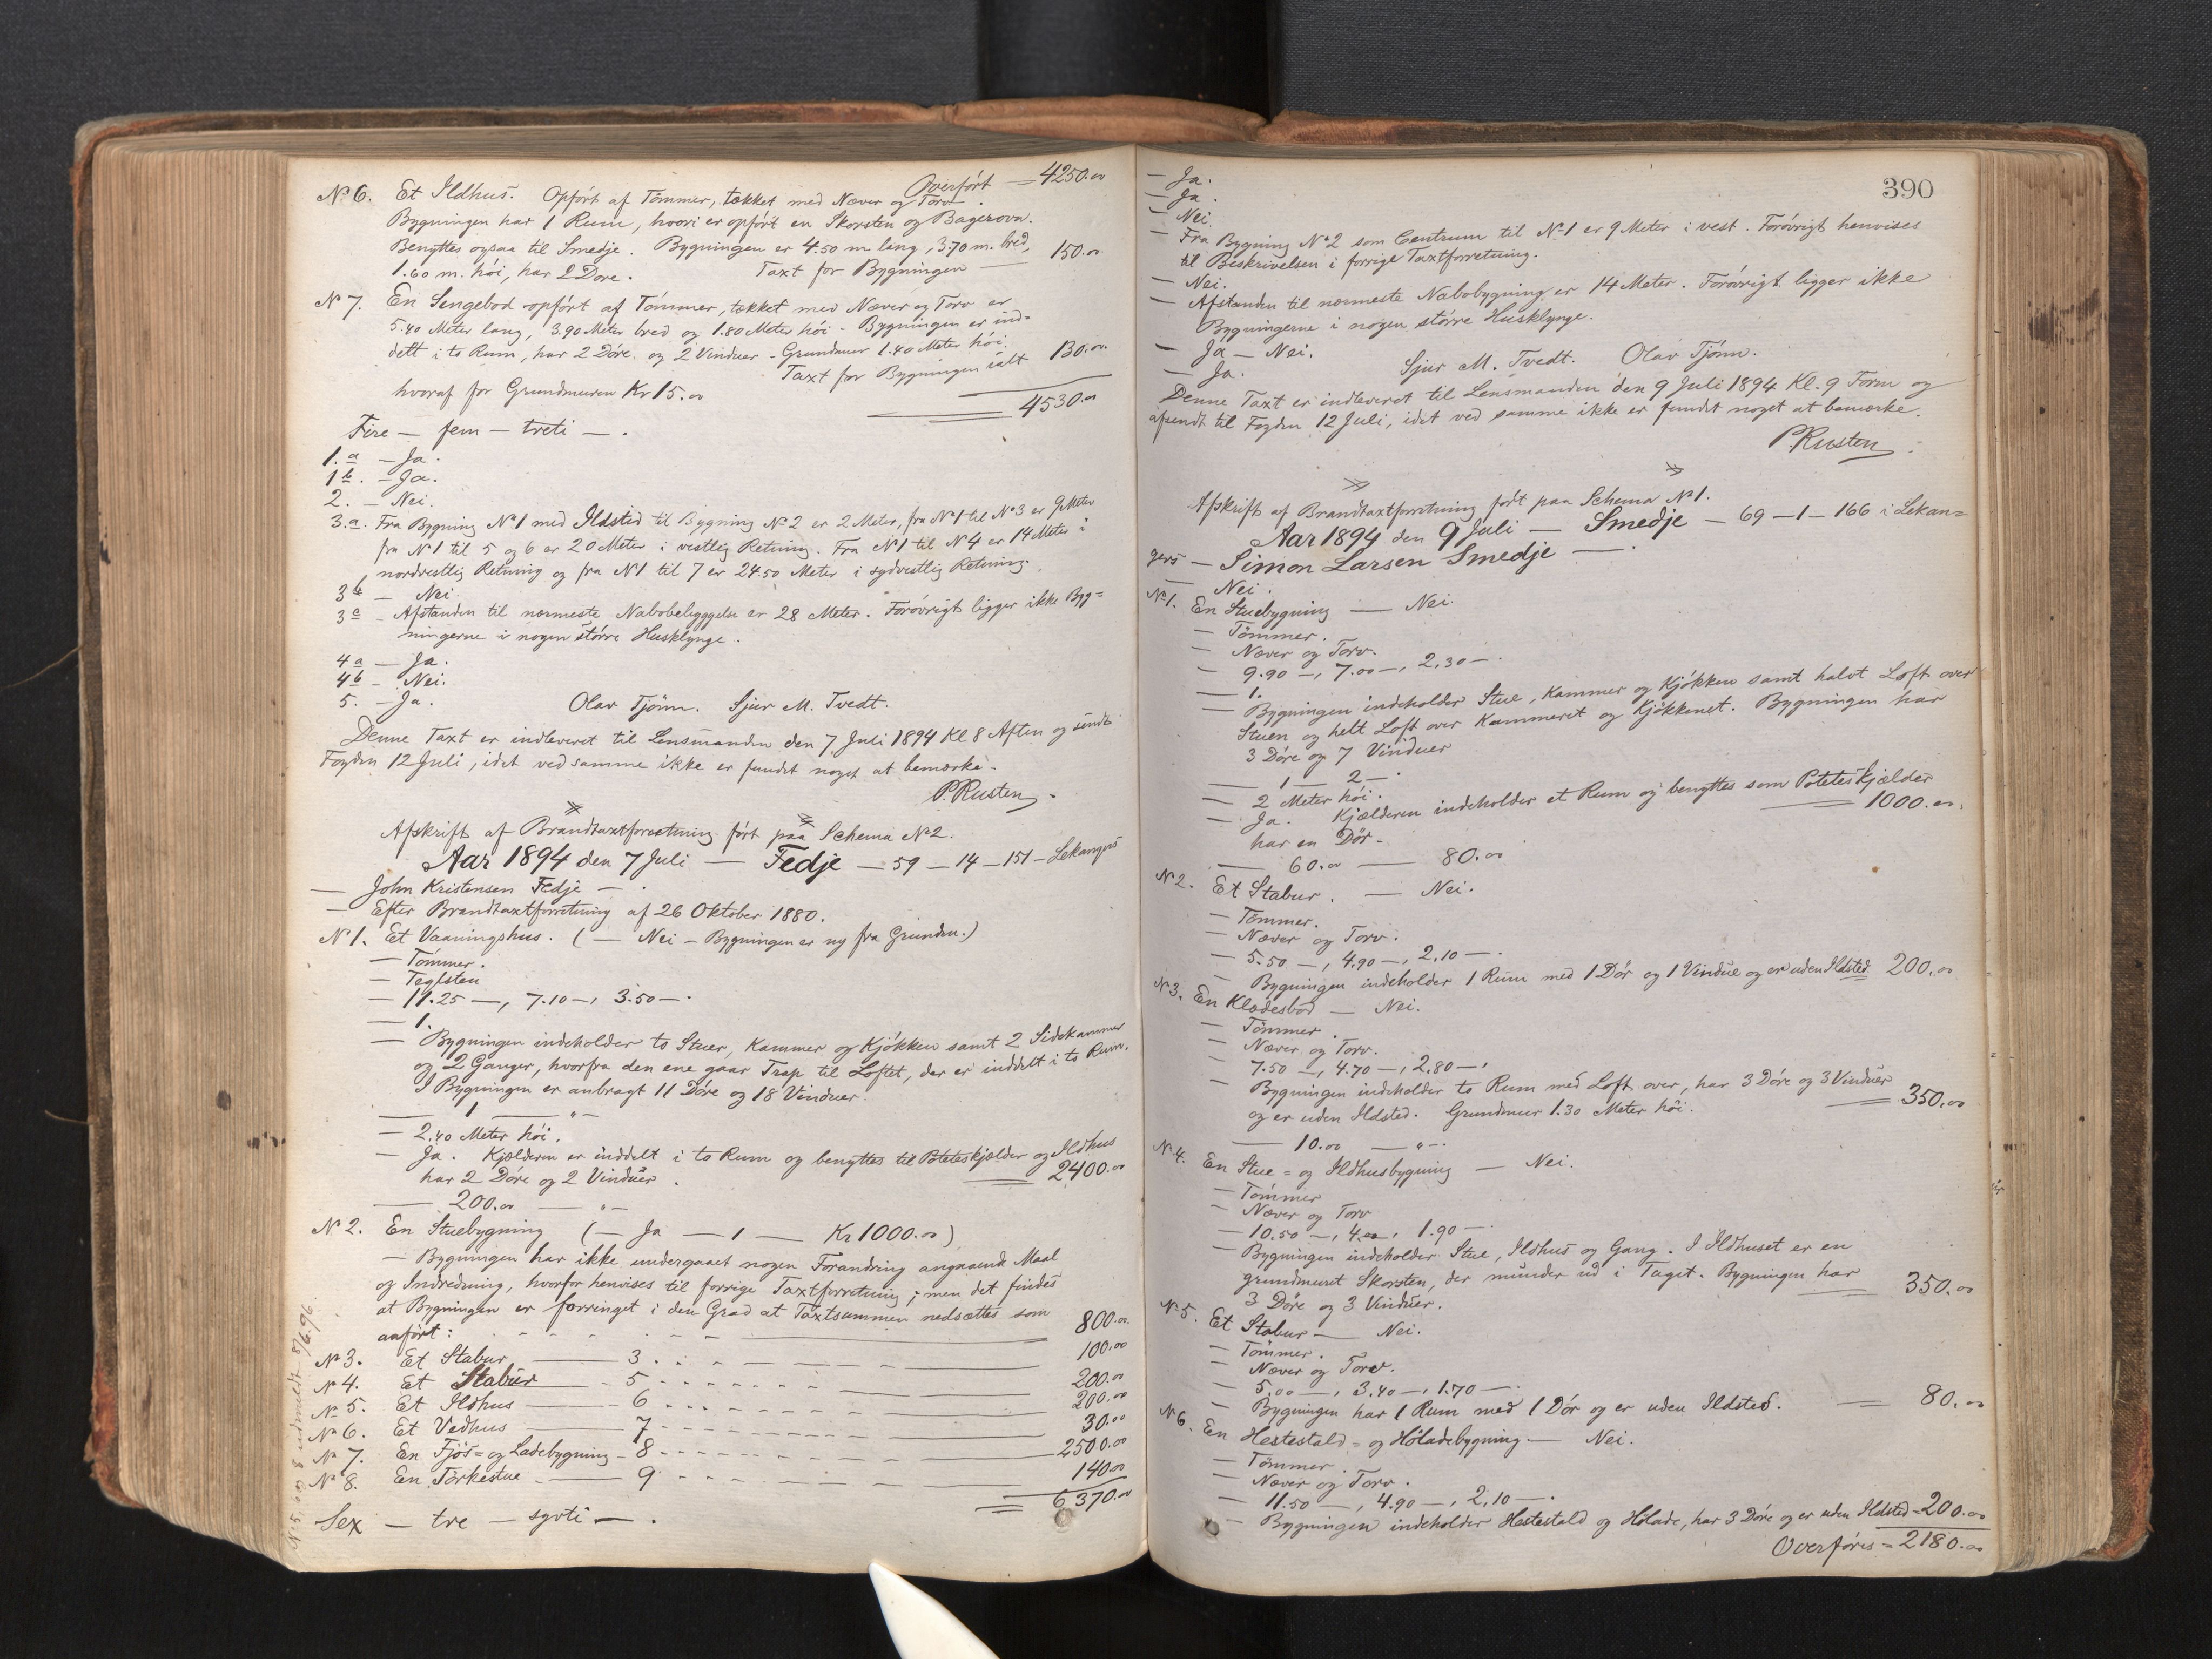 Overført = 4250.00
No 6. Et Ildhus. Opført af Tømmer, tækket med Næver og Torv.
Bygningen har 1 Rum, hvori er opført en Skorsten og Bagerovn.
Benyttes ogsaa til Smedje. Bygningen er 4.50 m lang, 3.70 m. bred,
1.60 m. høi, har 2 Døre. Taxt for Bygningen — 150.00
No 7. En Sengebod opført af Tømmer, tækket med Næver og Torv er
5.40 Meter lang, 3.90 Meter bred og 1.80 Meter høi - Bygningen er ind=
delt i to Rum, har 2 Døre og 2 Vinduer - Grundmur 1.40 Meter høi.
Taxt for Bygningen ialt 130.00
hvoraf for Grundmuren Kr 15.00
4530.00
Fire — fem — treti — .
1.a — Ja.
1b. — Ja.
2. — Nei.
3.a. Fra Bygning No 1 med Ildsted til Bygning No 2 er 2 Meter, fra No 1 til No 3 er 9 Meter
fra No 1 til 5 og 6 er 20 Meter i vestlig Retning. Fra No 1 til No 4 er 14 Meter i
nordvestlig Retning og fra No 1 til 7 er 24.50 Meter i sydvestlig Retning.
3b — Nei.
3c — Afstanden til nærmeste Nabobebyggelse er 28 Meter. Forøvrigt ligger ikke Byg=
ningerne i nogen større Husklynge.
4a — Ja.
4b — Nei.
5. — Ja. Olav Tjønn. Sjur M. Tvedt.
Denne Taxt er indleveret til Lensmanden den 7 Juli 1894 Kl 8 Aften og sendt
Fogden 12 Juli, idet ved samme ikke er fundet noget at bemærke.
P. Rusten.
Afskrift af Brandtaxtforretning ført paa Schema No 2.
Aar 1894 den 7 Juli — Fedje — 59 — 14 — 151 — Lekangers
— John Kristensen Fedje — .
— Efter Brandtaxtforretning af 26 Oktober 1880.
No 1. Et Vaaningshus. (— Nei — Bygningen er ny fra Grunden.)
— Tømmer.
— Teglsten
— 11.25 —, 7.10 —, 3.50 — .
— 1.
— Bygningen indeholder to Stuer, Kammer og Kjøkken samt 2 Sidekammer
og 2 Ganger, hvorfra den ene gaar Trap til Loftet, der er inddelt i to Rum.
I Bygningen er anbragt 11 Døre og 18 Vinduer.
— 1 — " —
— 2.40 Meter høi.
— Ja. Kjælderen er inddelt i to Rum og benyttes til Poteteskjælder og Ildhus
har 2 Døre og 2 Vinduer. 2400.00
— 200.00 — " —
No 2. En Stuebygning (— Ja — 1 — Kr 1000.00)
— Bygningen har ikke undergaaet nogen Forandring angaaende Maal
og Indredning, hvorfor henvises til forrige Taxtforretning; men det findes
at Bygningen er forringet i den Grad at Taxtsummen nedsættes som
anført: 800.00
No 3. Et Stabur — 3 — 100.00
No 4. Et Stabur — 5 — 200.00
No 5. Et Ildhus — 6 — 200.00
No 6. Et Vedhus — 7 — 30.00
No 7. En Fjøs= og Ladebygning — 8 — 2500.00
No 8. En Tørkestue — 9 — 140.00
6370.00
Sex — tre — sytti — .
No 5, 6 og 8 udmeldt 8/6.96.
390
— Ja.
— Ja.
— Nei.
— Fra Bygning No 2 som Centrum til No 1 er 9 Meter i vest. Forøvrigt henvises
til Beskrivelsen i forrige Taxtforretning.
— Nei.
— Afstanden til nærmeste Nabobygning er 14 Meter. Forøvrigt ligger ikke
Bygningerne i nogen større Husklynge.
— Ja — Nei.
— Ja. Sjur M. Tvedt. Olav Tjønn.
Denne Taxt er indleveret til Lensmanden den 9 Juli 1894 Kl. 9 Form og
afsendt til Fogden 12 Juli, idet ved samme ikke er fundet noget at bemærke.
P. Rusten.
Afskrift af Brandtaxtforretning ført paa Schema No 1.
Aar 1894 den 9 Juli — Smedje — 69 — 1 — 166 i Lekan=
gers — Simon Larsen Smedje — .
— Nei.
No 1. En Stuebygning — Nei.
— Tømmer.
— Næver og Torv.
— 9.90 —, 7.00 —, 2.30 — .
— 1.
— Bygningen indeholder Stue, Kammer og Kjøkken samt halvt Loft over
Stuen og helt Loft over Kammeret og Kjøkkenet. Bygningen har
3 Døre og 7 Vinduer
— 1 — 2 — .
— 2 Meter høi.
— Ja. Kjælderen indeholder et Rum og benyttes som Poteteskjælder
har en Dør. 1000.00
— 60.00 — 80.00
No 2. Et Stabur. — Nei.
— Tømmer.
— Næver og Torv.
— 5.50 —, 4.90 —, 2.10 — .
— Bygningen indeholder 1 Rum med 1 Dør og 1 Vindue og er uden Ildsted 200.00
No 3. En Klædesbod — Nei.
— Tømmer.
— Næver og Torv.
— 7.50 —, 4.70 —, 2.80 — .
— Bygningen indeholder to Rum med Loft over, har 3 Døre og 3 Vinduer
og er uden Ildsted. Grundmur 1.30 Meter høi. 350.00
— 10.00 — " — .
No 4. En Stue = og Ildhusbygning — Nei.
— Tømmer
— Næver og Torv
— 10.50 —, 4.00, 1.90 — .
— Bygningen indeholder Stue, Ildhus og Gang. I Ildhuset er en
grundmuret Skorsten, der munder ud i Taget. Bygningen har
3 Døre og 3 Vinduer. 350.00
No 5. Et Stabur — Nei.
— Tømmer.
— Næver og Torv.
— 5.00 —, 3.40 —, 1.70 — .
— Bygningen har 1 Rum med 1 Dør og er uden Ildsted. 80.00
No 6. En Hestestald = og Høladebygning. — Nei.
— Tømmer.
— Næver og Torv.
— 11.50 —, 4.90 —, 2.10 — .
— Bygningen indeholder Hestestald og Hølade, har 3 Døre og er uden Ildsted = 200.00
Overføres = 2180.00